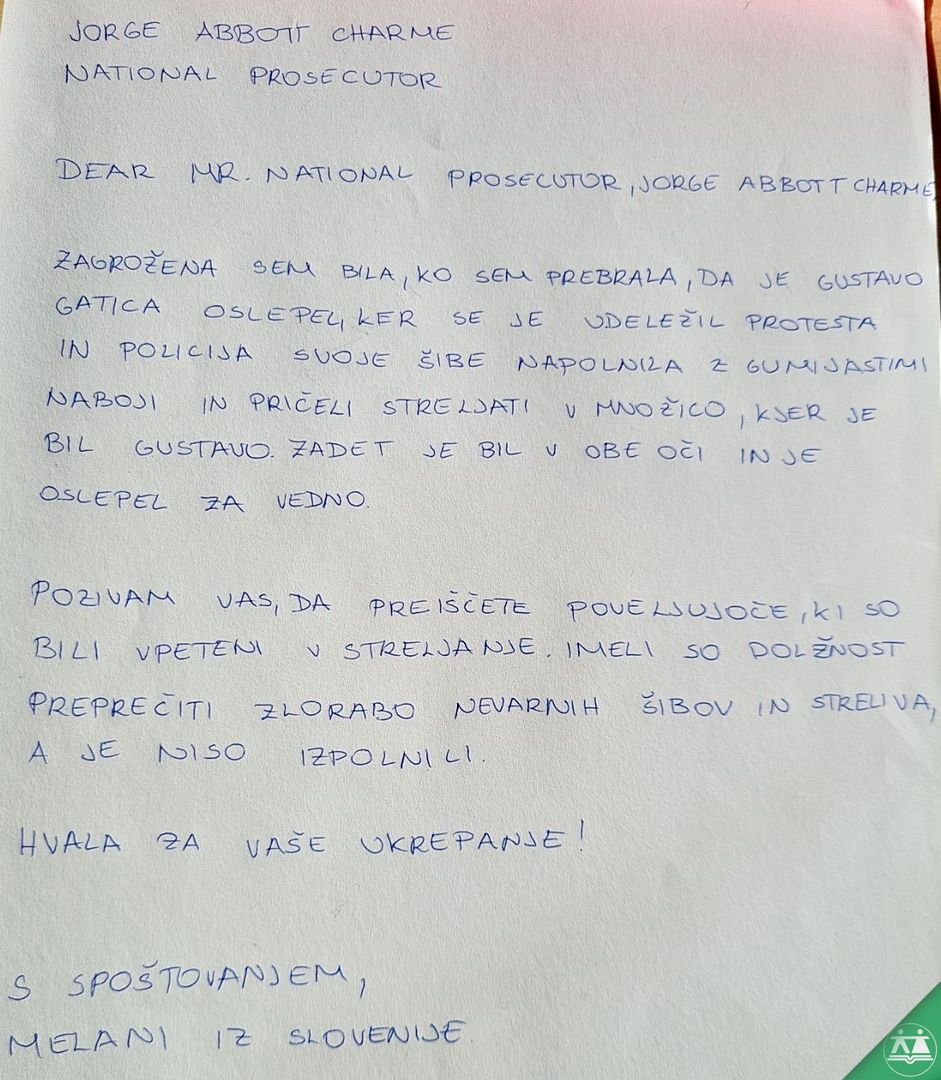 JORGE ABBOTT CHARME
NATIONAL PROSECUTOR
DEAR MR. NATIONAL PROSECUTOR, JORGE ABBOTT CHARME,
ZAGROŽENA SEM BILA, KO SEM PREBRALA, DA JE GUSTAVO
GATICA OSLEPEL, KER SE JE UDELEŽIL PROTESTA
IN POLICIJA SVOJE ŠIBE NAPOLNILA Z GUMIJASTIMI
NABOJI IN PRIČELI STRELJATI V MNOŽICO, KJER JE
BIL GUSTAVO. ZADET JE BIL V OBE OČI IN JE
OSLEPEL ZA VEDNO.
POZIVAM VAS, DA PREIŠČETE POVELJUJOČE, KI SO
BILI VPETENI V STRELJANJE. IMELI SO DOLŽNOST
PREPREČITI ZLORABO NEVARNIH ŠIBOV IN STRELIVA,
A JE NISO IZPOLNILI.
HVALA ZA VAŠE UKREPANJE!
S SPOŠTOVANJEM,
MELANI IZ SLOVENIJE.